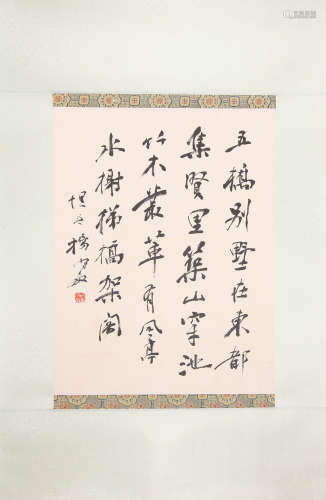 五橋別墅在東都
集賢里築山穿池
竹木叢萃有風亭
水榭梯橋架閣